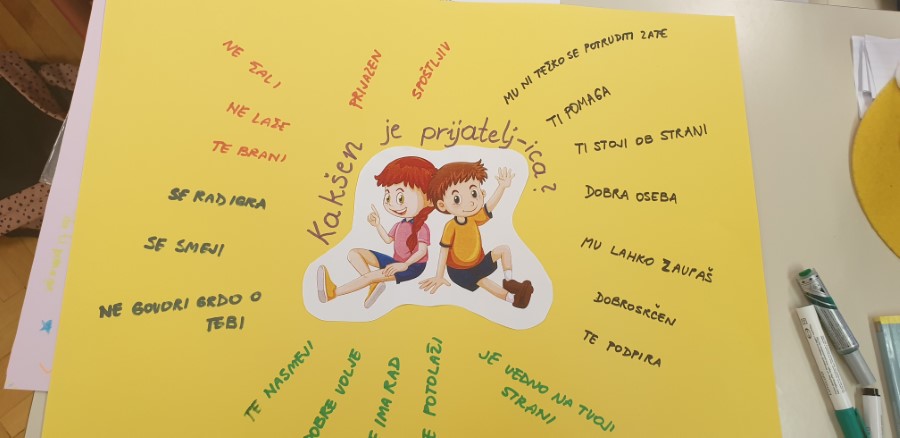 Kakšen je prijatelj-ica?
NE ŽALI
NE LAŽE
TE BRANI
SE RAD IGRA
SE SMEJI
NE GOVORI GRDO O
TEBI
PRIJAZEN
SPOŠTLJIV
MU NI TEŽKO SE POTRUDITI ZATE
TI POMAGA
TI STOJI OB STRANI
DOBRA OSEBA
MU LAHKO ZAUPAŠ
DOBROSRČEN
TE PODPIRA
TE NASMEJI
DOBRE VOLJE
IMA RAD
POTOLAŽI
JE VEDNO NA TVOJI
STRANI